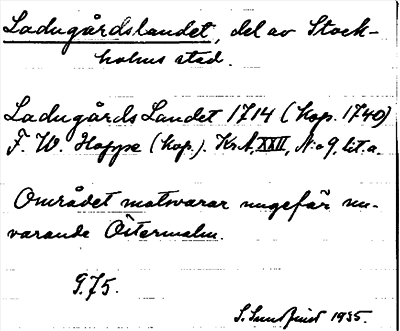 Ladugårdslandet, del av Stock-
holms stad.
Ladugårds Landet 1714 (kop. 1740)
F. W. Hoppe (kop.). Kr.A. XXII, N:o 9, lit. a.
Området motsvarar ungefär nu-
varande Östermalm.
9.75.
S. Sundquist 1935.